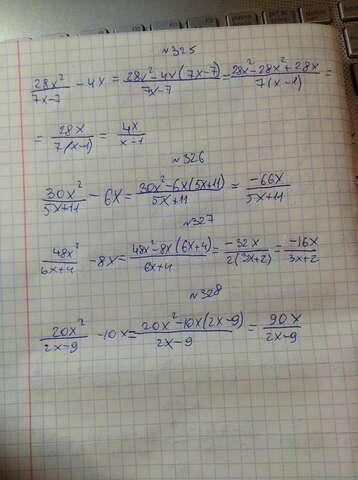 №325
28x²/7x-7 - 4x = 28x²-4x(7x-7)/7x-7 = 28x²-28x²+28x/7(x-1) =
= 28x/7(x-1) = 4x/x-1
№326
30x²/5x+11 - 6x = 30x²-6x(5x+11)/5x+11 = -66x/5x+11
№327
48x²/6x+4 - 8x = 48x²-8x(6x+4)/6x+4 = -32x/2(3x+2) = -16x/3x+2
№328
20x²/2x-9 - 10x = 20x²-10x(2x-9)/2x-9 = 90x/2x-9